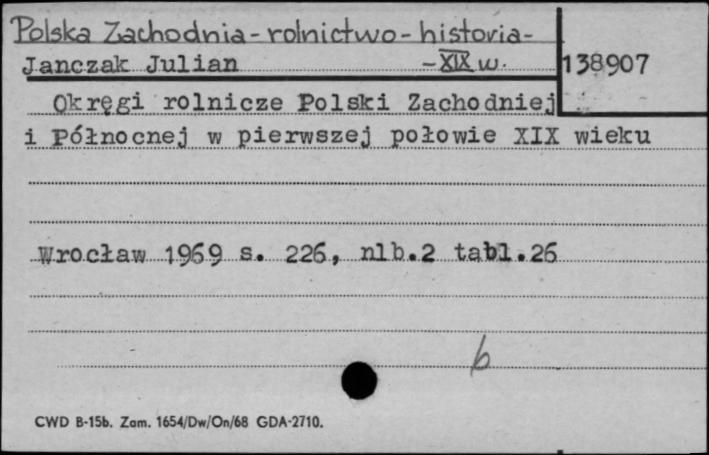 Polska Zachodnia - rolnictwo - historia -
Janczak Julian - XIX w. 138907
Okręgi rolnicze Polski Zachodniej
i Północnej w pierwszej połowie XIX wieku
Wrocław 1969 s. 226, nlb.2 tabl.26
b
CWD B-15b. Zam. 1654/Dw/On/68 GDA-2710.